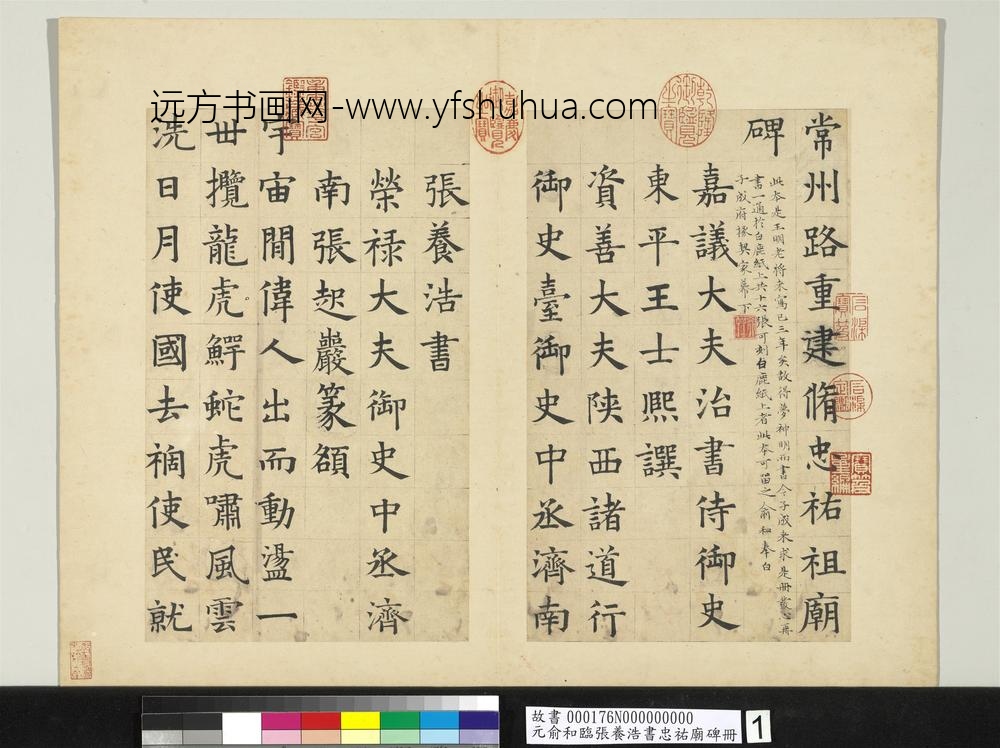 远方书画网-www.yfshuhua.com
常州路重建脩忠祐祖廟
碑
此本是王明老將来寫已三年矣故得夢神明而書今子成来求是冊發心再
書一通於白鹿紙上共十六張可刻白鹿紙上者此本可留之俞和奉白
子成府掾契家幕下
嘉議大夫治書侍御史
東平王士熙譔
資善大夫陝西諸道行
御史臺御史中丞濟南
張養浩書
榮禄大夫御史中丞濟
南張起巖篆額
宇宙間偉人出而動盪一
世攬龍虎鰐蛇虎嘯風雲
洗日月使國去禍使民就
故書 000176N000000000
元俞和臨張養浩書忠祐廟碑冊
1